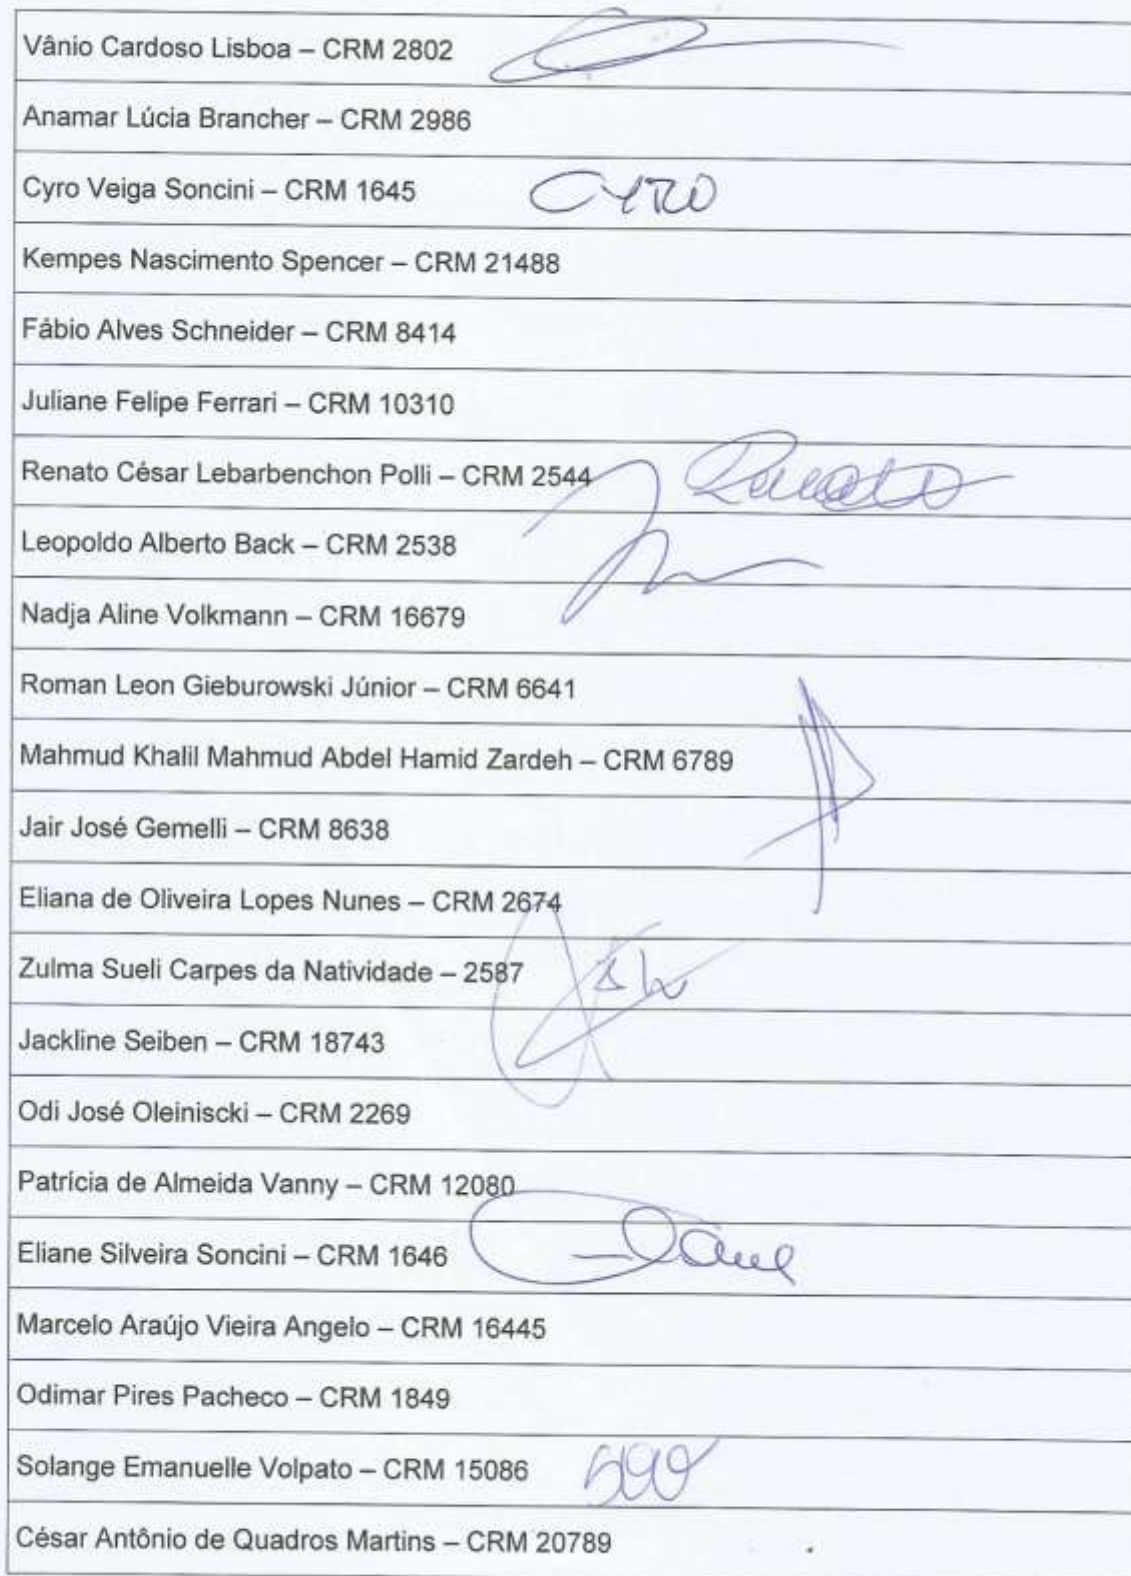 Vânio Cardoso Lisboa – CRM 2802
Anamar Lúcia Brancher – CRM 2986
Cyro Veiga Soncini – CRM 1645 CYRO
Kempes Nascimento Spencer – CRM 21488
Fábio Alves Schneider – CRM 8414
Juliane Felipe Ferrari – CRM 10310
Renato César Lebarbenchon Polli – CRM 2544 Renato
Leopoldo Alberto Back – CRM 2538
Nadja Aline Volkmann – CRM 16679
Roman Leon Gieburowski Júnior – CRM 6641
Mahmud Khalil Mahmud Abdel Hamid Zardeh – CRM 6789
Jair José Gemelli – CRM 8638
Eliana de Oliveira Lopes Nunes – CRM 2674
Zulma Sueli Carpes da Natividade – 2587
Jackline Seiben – CRM 18743
Odi José Oleiniscki – CRM 2269
Patrícia de Almeida Vanny – CRM 12080
Eliane Silveira Soncini – CRM 1646
Marcelo Araújo Vieira Angelo – CRM 16445
Odimar Pires Pacheco – CRM 1849
Solange Emanuelle Volpato – CRM 15086
César Antônio de Quadros Martins – CRM 20789